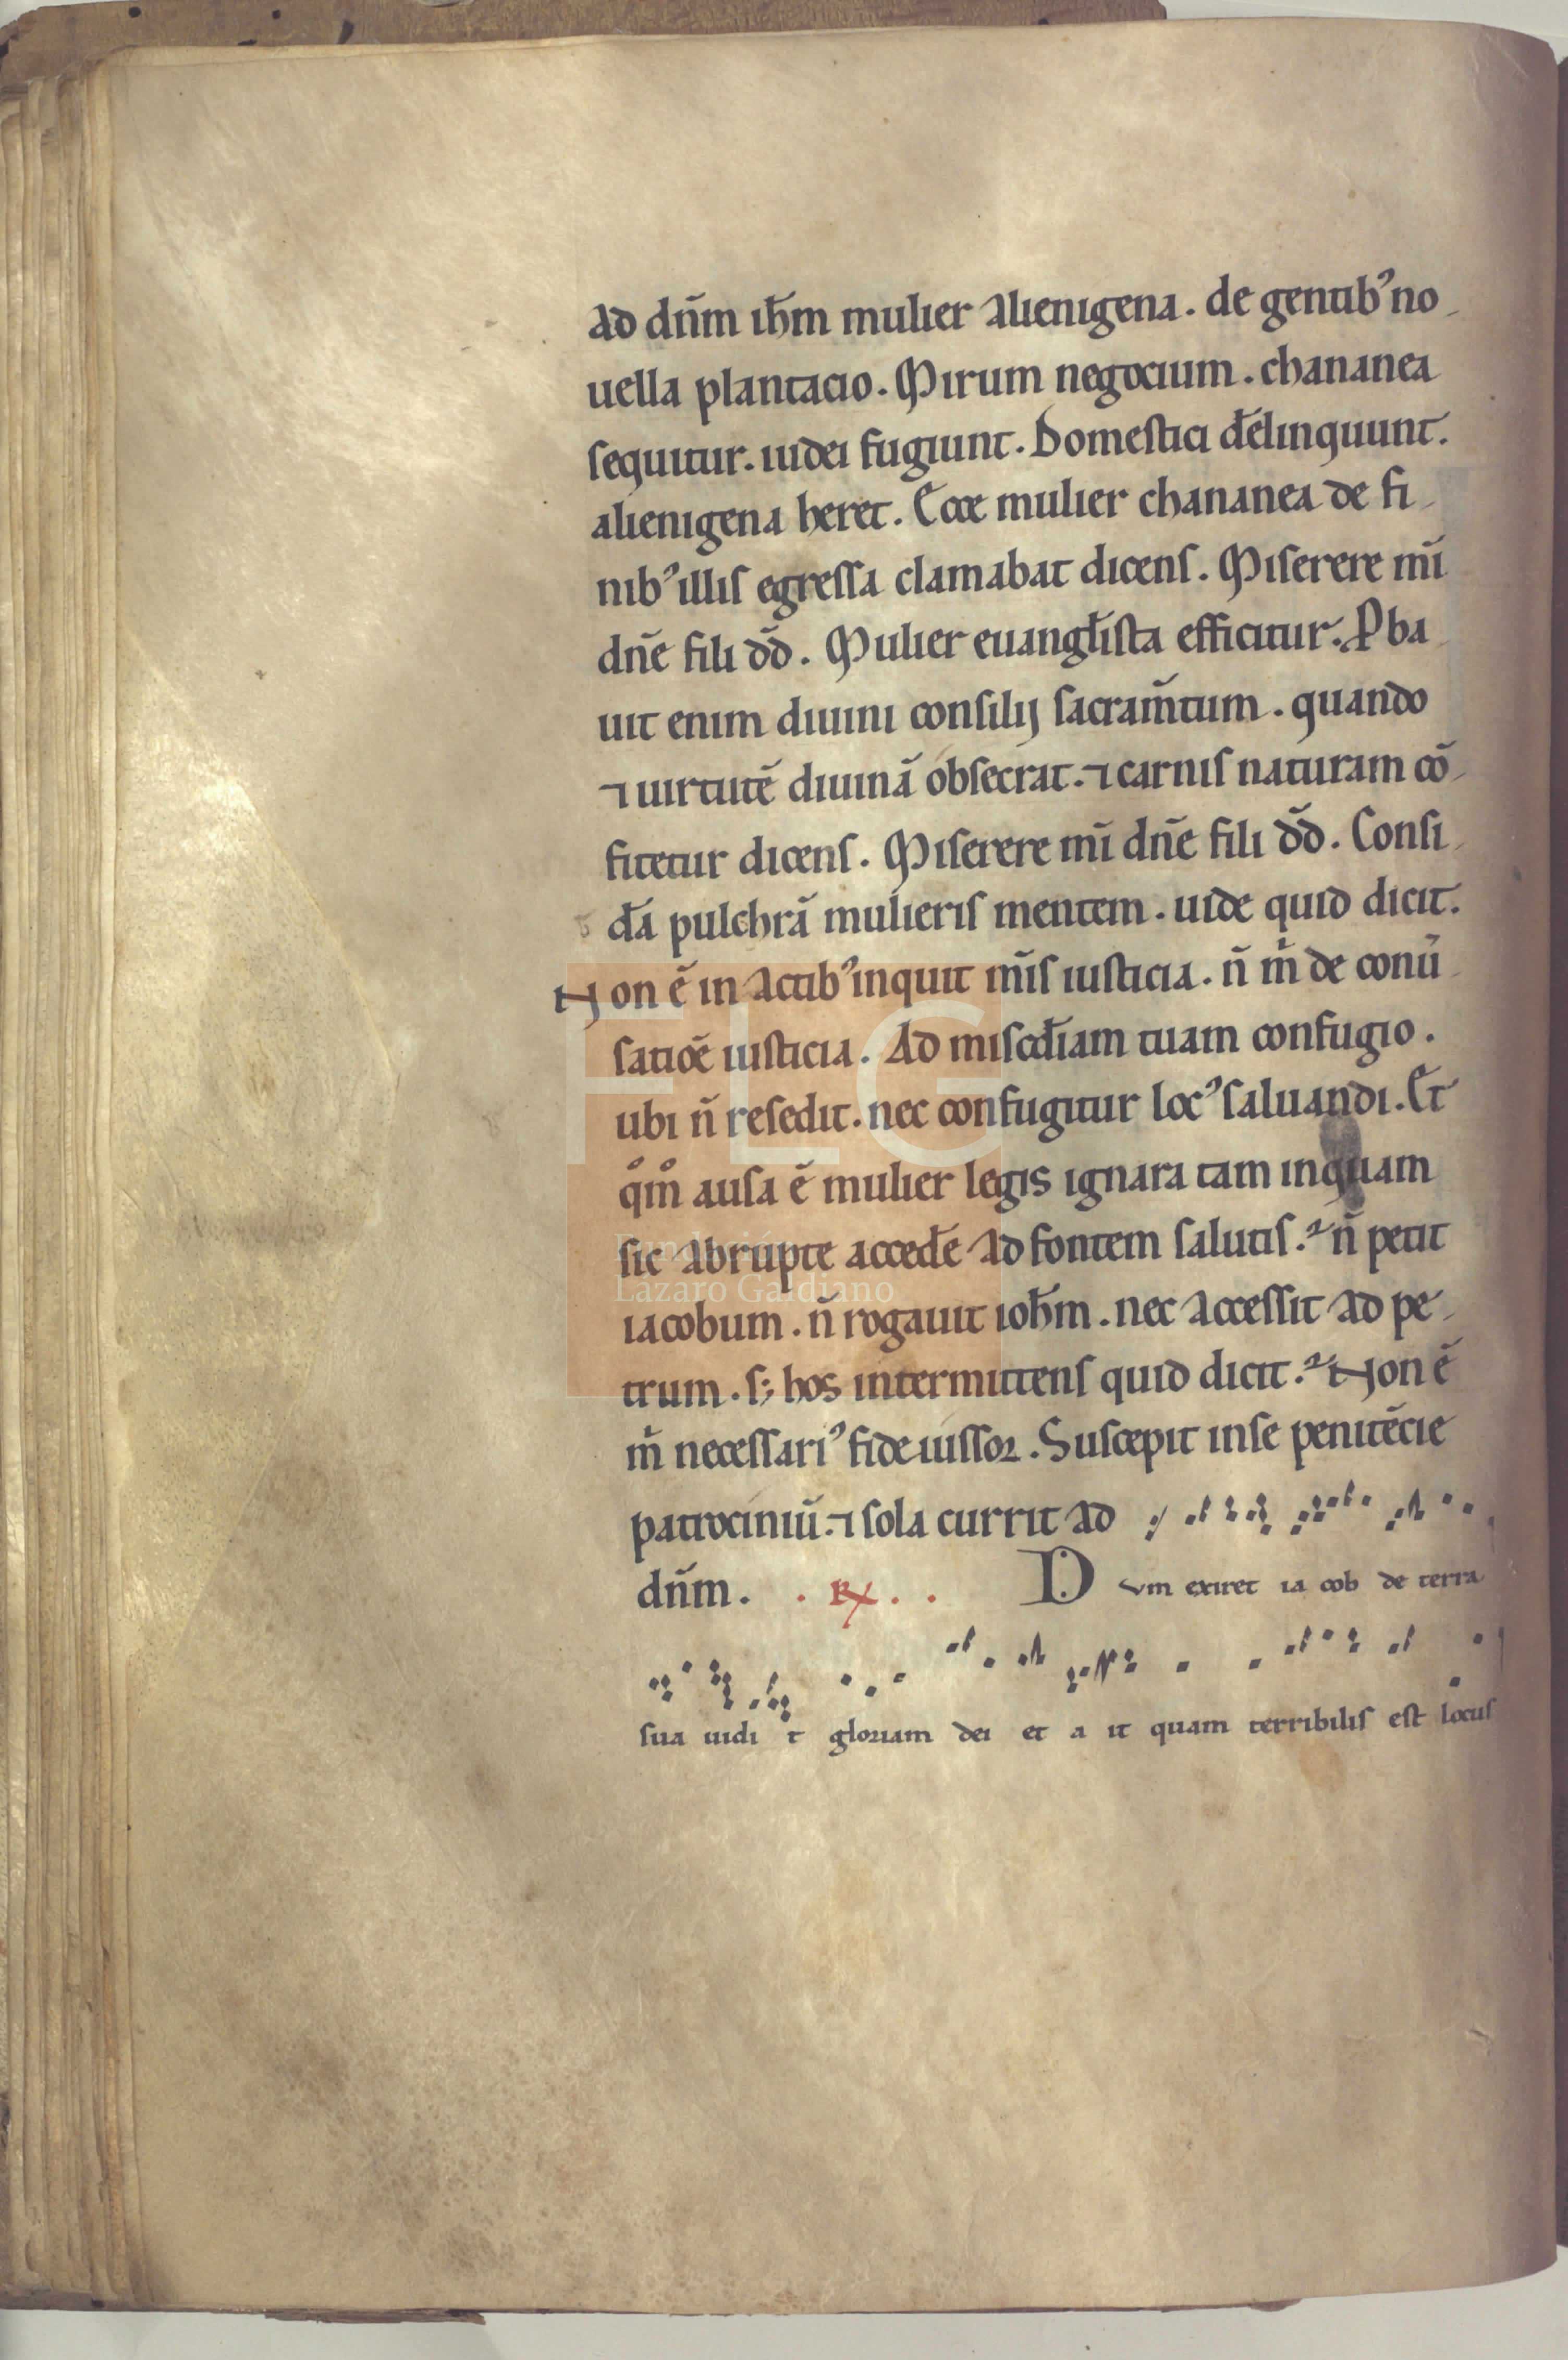 ad dñm ihm̄ mulier alienigena. de gentibꝰ no
uella plantacio. Mirum negocium. chananea
sequitur. iudei fugiunt. Domestici delīnquunt.
alienigena heret. Ecce mulier chananea de fi
nibꝰ illis egressa clamabat dicens. Miserere mī
dñe fili dd̄. Mulier euangl̄ista efficitur. Ꝓba
uit enim diuini consilij sacram̄tum. quando
⁊ uirtutē diuinā obsecrat. ⁊ carnis naturam cō
fitetur dicens. Miserere mī dñe fili dd̄. Consi
đa pulchrā mulieris mentem. uide quid dicit.
Non ē in actibꝰ inquit mīs iusticia. ñ m̄ de conū
satiōe iusticia. Ad misc̄diam tuam confugio.
ubi ñ resedit. nec confugitur locꝰ saluandi. Et
qͦmͦ ausa ē mulier legis ignara tam inquam
sic abrupte accedē ad fontem salutis. ñ petit
iacobum. ñ rogauit ioħm. nec accessit ad pe
trum. s; hos intermittens quid dicit. Non ē
m̄ necessariꝰ fide iussor. Suscepit in se penitēcie
patrociniū. ⁊ sola currit ad
dñm. ℟.
Dvm exiret ia cob de terra
sua uidi t gloriam dei et a it quam terribilis est locus
FLG
Fundación
Lázaro Galdiano